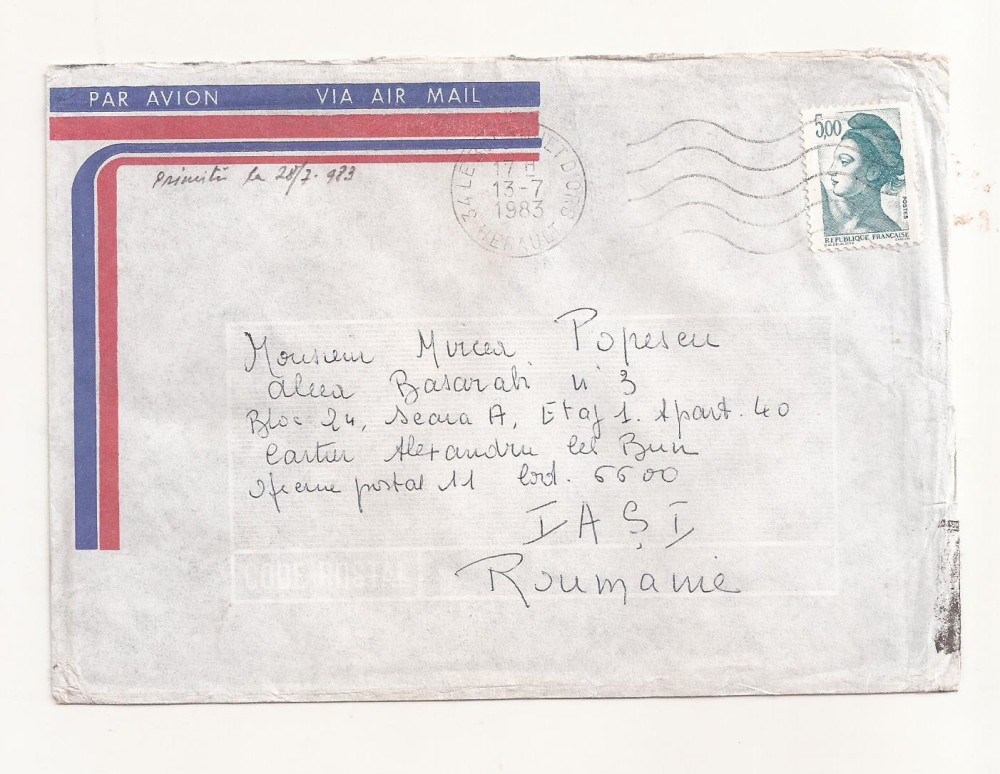 PAR AVION VIA AIR MAIL
5,00
POSTES
REPUBLIQUE FRANÇAISE
17 H
13-7
1983
34 HERAULT
Primită la 28/7.983
Monsieur Mircea Popescu
Aleea Basarabi n° 3
Bloc 24, Scara A, Etaj 1. Apart. 40
Cartier Alexandru cel Bun
Oficiul postal 11 Cod. 6600
IAŞI
Roumanie
CODE POSTAL